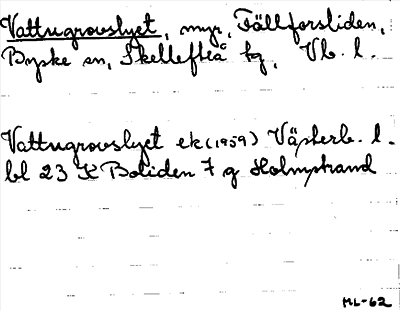 Vattugrovslyet, myr, Fällforsliden,
Byske sn, Skellefteå tg, Vb. l.
Vattugrovslyet ek (1959) Västerb. l.
bl 23 K Boliden 7 g Holmstrand
HL-62